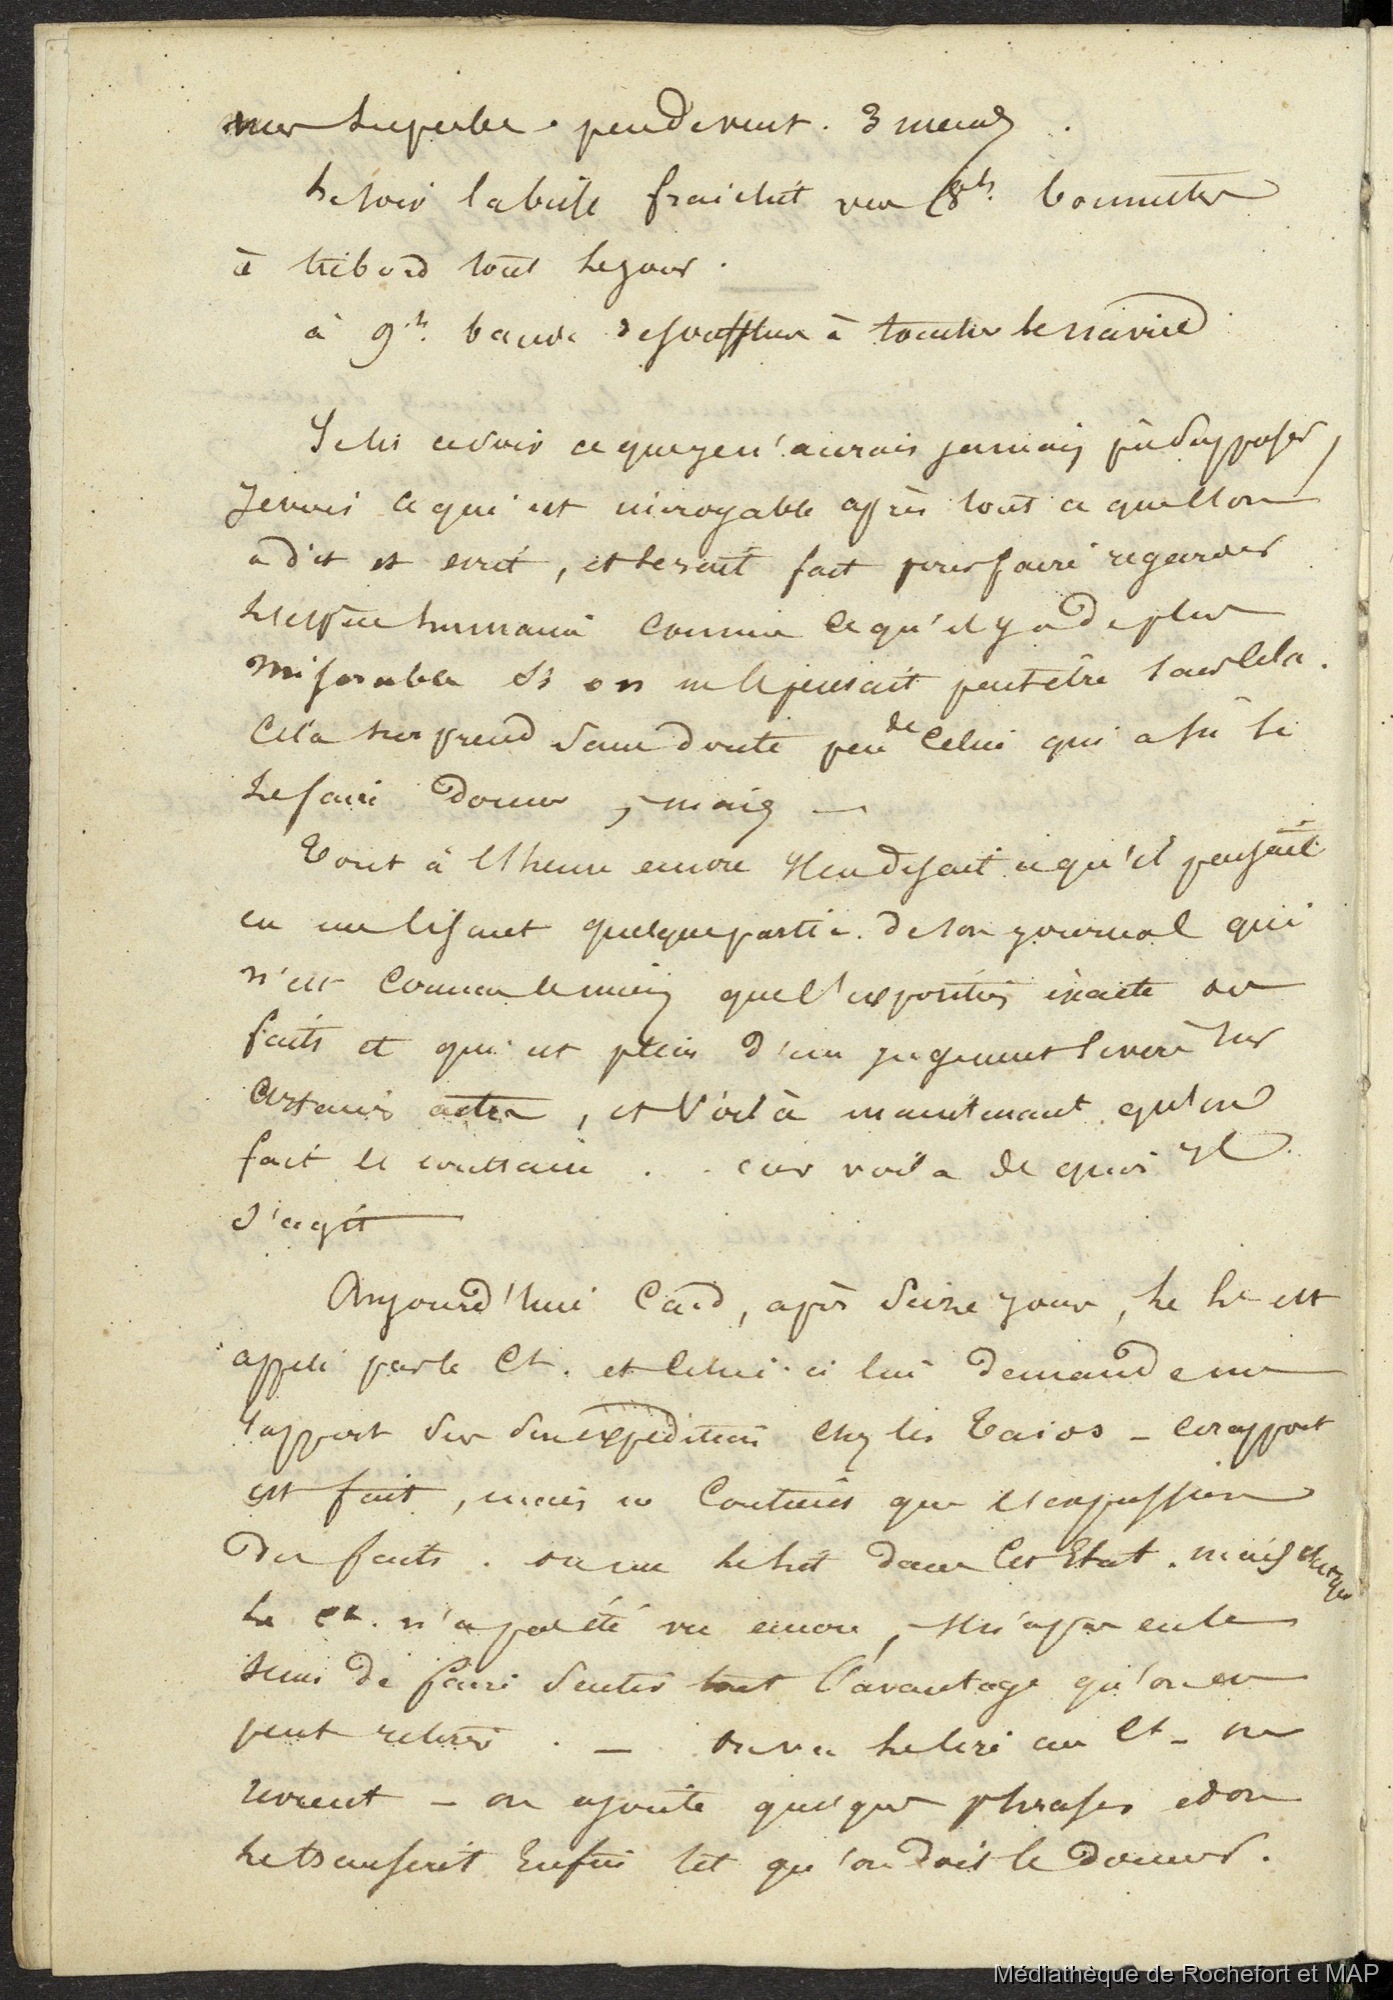 mer superbe. peu de vent. 3 nœuds.
le soir la brise fraichit vers 8h. bonnettes
à tribord tout le jour.
à 9h. bande de souffleurs à toucher le navire
Je lis a voir ce que je n'aurais jamais pu supposer,
Je vois ce qui est incroyable après tout ce que l'on
a dit et ecrit, et serait fait pour faire regarder
l'espèce humaine comme ce qu'il y a de plus
miserable si on ne le pensait peut être sans cela.
Cela surprend sans doute peu de celui qui a su se
le faire donner, mais —
Tout à l'heure encore il me disait ce qu'il pensait
en me lisant quelque partie de son journal qui
n'est comme le mien que l'exposition exacte des
faits et qui est plein d'un jugement severe sur
certains actes, et voilà maintenant qu'on
fait le contraire . . car voila de quoi il
s'agit
Aujourd'hui Card, après seize jours, le Lt est
appelé par le Ct. et celui-ci lui demande un
rapport sur son expedition chez les Taios - ce rapport
est fait, mais ne contient que l'expression
des faits. on me le lit dans cet Etat. mais
le Ct. n'a pas été vu encore, il n'a pas eu le
tems de faire sentir tout l'avantage qu'on en
peut retirer. — on va le lire au Ct - on
revient - on ajoute quelques phrases et on
le transcrit Enfin tel qu'on doit le donner.
Médiathèque de Rochefort et MAP